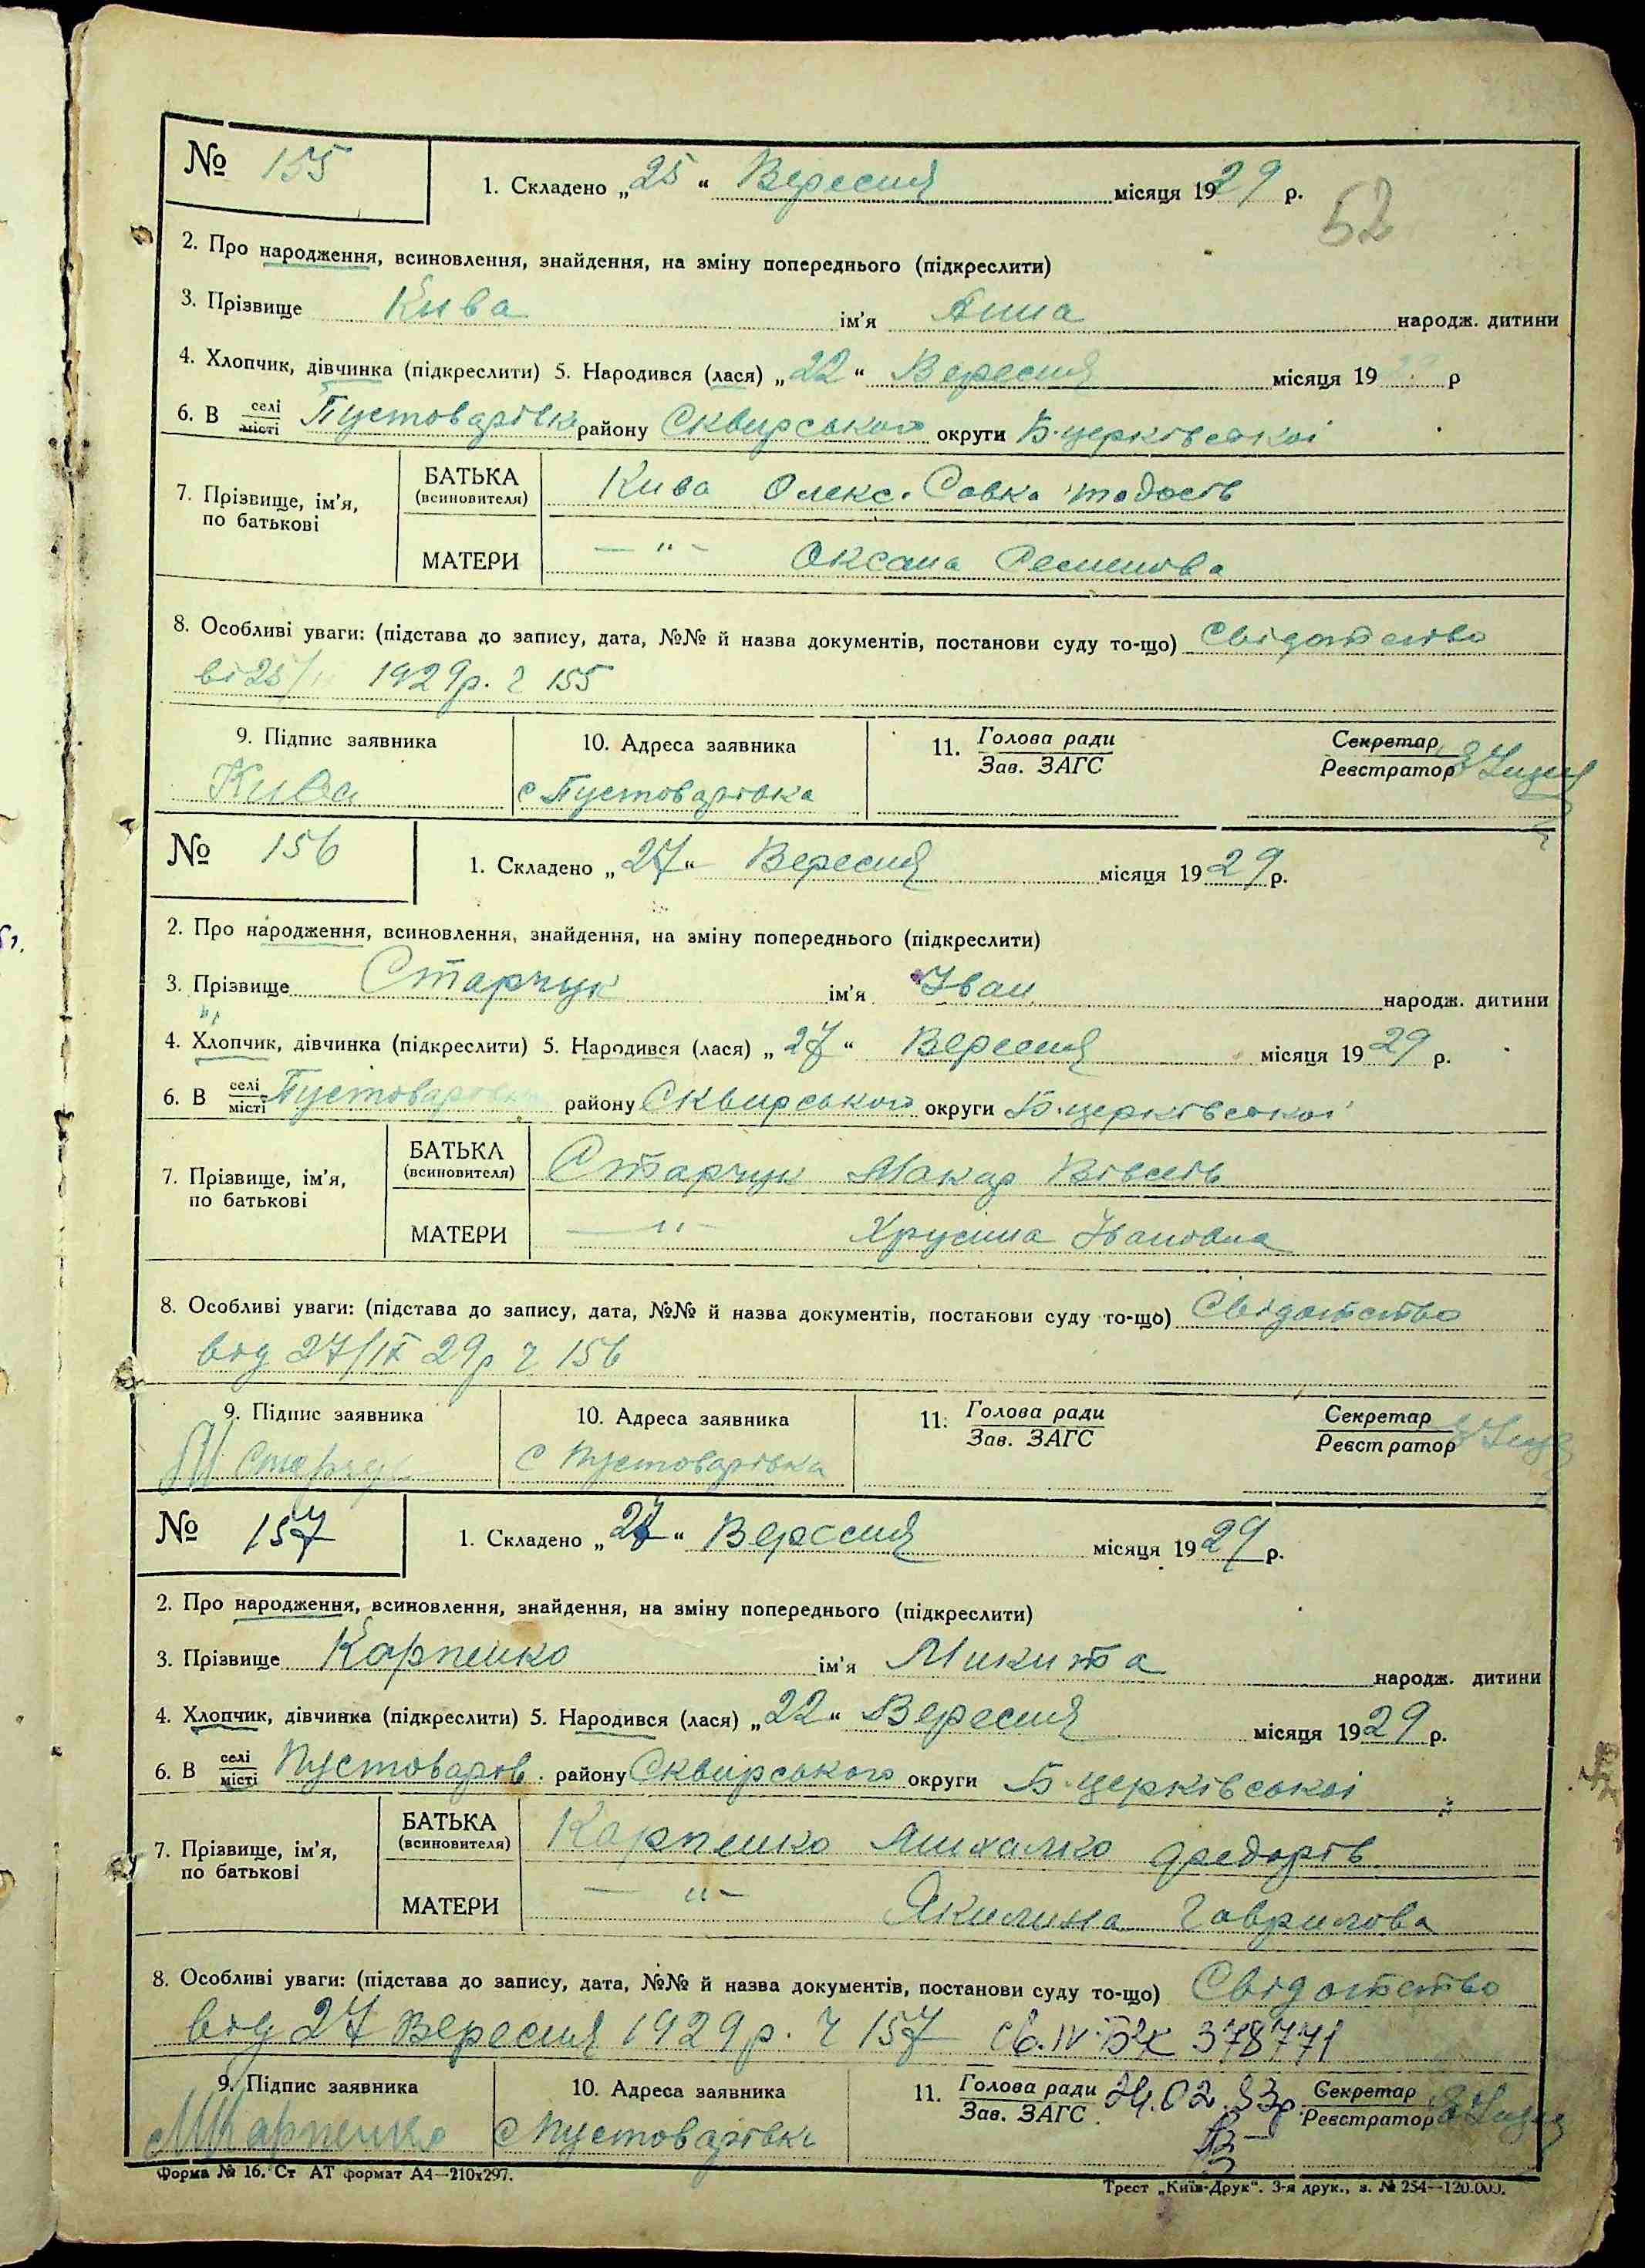 № 155
1. Складено „25“ Вересня місяця 1929 р.
52
2. Про народження, всиновлення, знайдення, на зміну попереднього (підкреслити)
3. Прізвище Кива ім'я Анна народж. дитини
4. Хлопчик, дівчинка (підкреслити) 5. Народився (лася) „22“ Вересня місяця 19 р
6. В селі/місті Пустоварівка району Сквирського округи Б-церківської
7. Прізвище, ім'я, по батькові
БАТЬКА (всиновителя) Кива Олекс. Савка
МАТЕРИ —"— Оксана
8. Особливі уваги: (підстава до запису, дата, №№ й назва документів, постанови суду то-що) Свідотство
1929р. ч 155
9. Підпис заявника 10. Адреса заявника 11. Голова ради/Зав. ЗАГС Секретар/Реєстратор
Кива с Пустоварівка
№ 156
1. Складено „27“ Вересня місяця 1929 р.
2. Про народження, всиновлення, знайдення, на зміну попереднього (підкреслити)
3. Прізвище Старчук ім'я Іван народж. дитини
4. Хлопчик, дівчинка (підкреслити) 5. Народився (лася) „27“ Вересня місяця 1929 р.
6. В селі/місті Пустоварівка району Сквирського округи Б-церківської
7. Прізвище, ім'я, по батькові
БАТЬКА (всиновителя) Старчук Макар
МАТЕРИ —"— Хрусина Івановна
8. Особливі уваги: (підстава до запису, дата, №№ й назва документів, постанови суду то-що) Свідотство
від 27/IX 29р ч 156
9. Підпис заявника 10. Адреса заявника 11. Голова ради/Зав. ЗАГС Секретар/Реєстратор
М Старчук с Пустоварівка
№ 157
1. Складено „27“ Вересня місяця 1929 р.
2. Про народження, всиновлення, знайдення, на зміну попереднього (підкреслити)
3. Прізвище Карпенко ім'я Микита народж. дитини
4. Хлопчик, дівчинка (підкреслити) 5. Народився (лася) „22“ Вересня місяця 1929 р.
6. В селі/місті Пустоварів. району Сквирського округи Б-церківської
7. Прізвище, ім'я, по батькові
БАТЬКА (всиновителя) Карпенко Михалко Федорів
МАТЕРИ —"— Якилина Гаврилова
8. Особливі уваги: (підстава до запису, дата, №№ й назва документів, постанови суду то-що) Свідотство
від 27 Вересня 1929р. ч 157 св. IV-БК 378771
9. Підпис заявника 10. Адреса заявника 11. Голова ради/Зав. ЗАГС 24.02.83р. Секретар/Реєстратор
М Карпенко с Пустоварівка
Форма № 16. Ст АТ формат А4—210х297.
Трест „Київ-Друк“. 3-я друк., з. № 254—120.000.